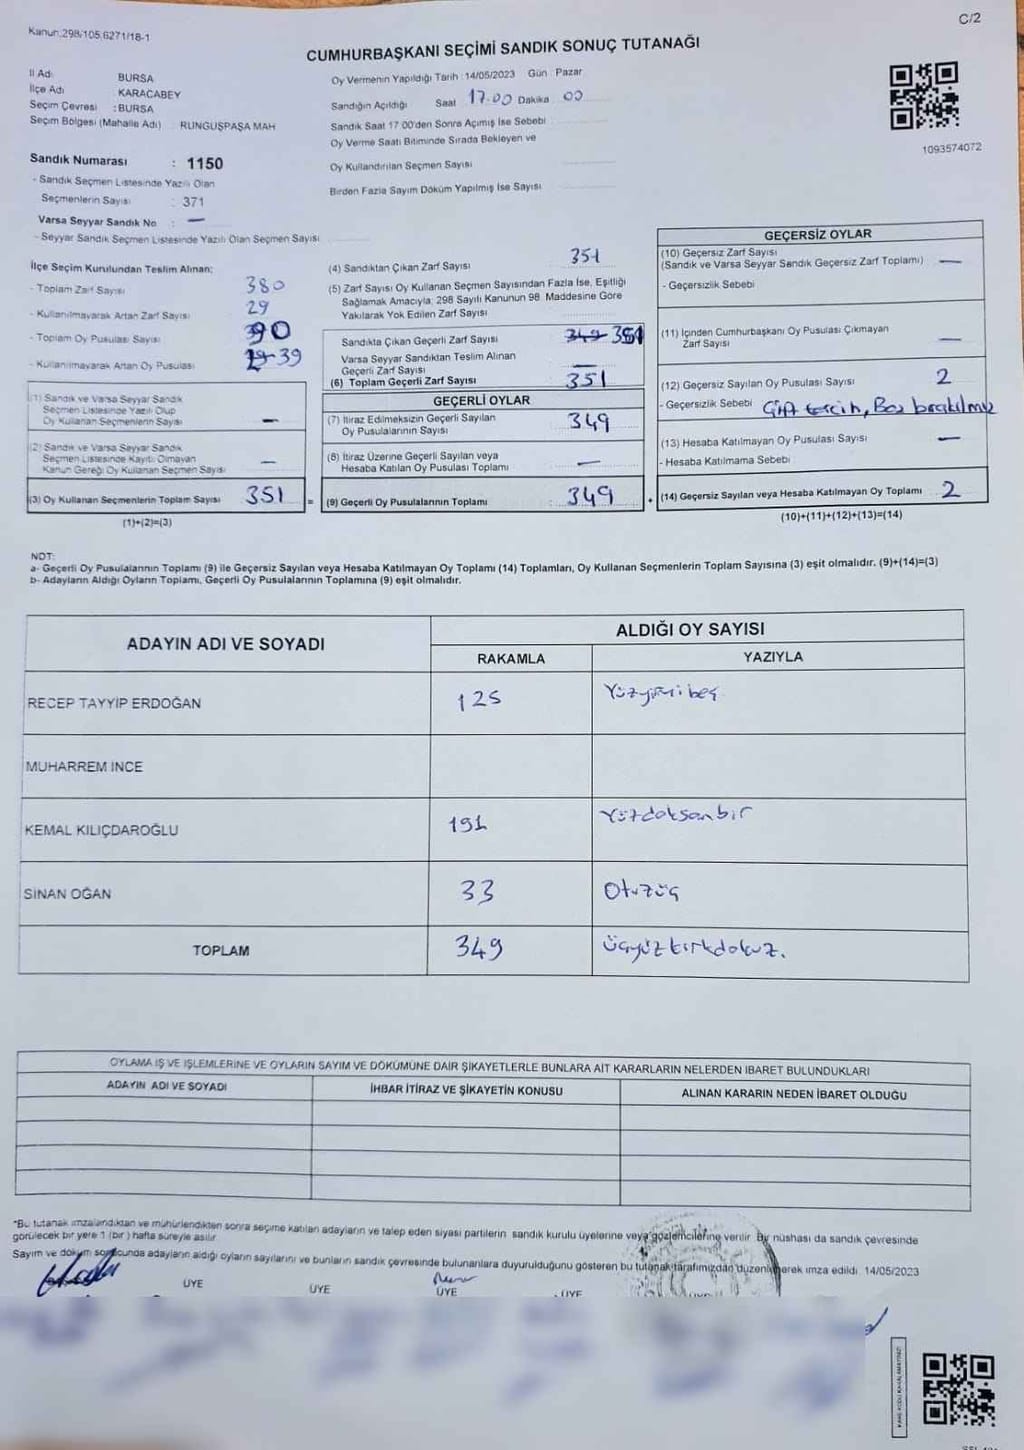 C/2
Kanun:298/105,6271/18-1
CUMHURBAŞKANI SEÇİMİ SANDIK SONUÇ TUTANAĞI
İl Adı BURSA
İlçe Adı : KARACABEY
Seçim Çevresi : BURSA
Seçim Bölgesi (Mahalle Adı) RUNGUŞPAŞA MAH
Sandık Numarası : 1150
- Sandık Seçmen Listesinde Yazılı Olan
Seçmenlerin Sayısı : 371
Varsa Seyyar Sandık No : —
- Seyyar Sandık Seçmen Listesinde Yazılı Olan Seçmen Sayısı
Oy Vermenin Yapıldığı Tarih : 14/05/2023 Gün Pazar
Sandığın Açıldığı Saat 17.00 Dakika 00
Sandık Saat 17 00'den Sonra Açılmış İse Sebebi
Oy Verme Saati Bitiminde Sırada Bekleyen ve
Oy Kullandırılan Seçmen Sayısı
Birden Fazla Sayım Döküm Yapılmış İse Sayısı
1093574072
İlçe Seçim Kurulundan Teslim Alınan;
- Toplam Zarf Sayısı 380
- Kullanılmayarak Artan Zarf Sayısı 29
- Toplam Oy Pusulası Sayısı 390
- Kullanılmayarak Artan Oy Pusulası 29 39
(1) Sandık ve Varsa Seyyar Sandık
Seçmen Listesinde Yazılı Olup
Oy Kullanan Seçmenlerin Sayısı —
(2) Sandık ve Varsa Seyyar Sandık
Seçmen Listesinde Kayıtlı Olmayan
Kanun Gereği Oy Kullanan Seçmen Sayısı —
(3) Oy Kullanan Seçmenlerin Toplam Sayısı 351 =
(1)+(2)=(3)
(4) Sandıktan Çıkan Zarf Sayısı 351
(5) Zarf Sayısı Oy Kullanan Seçmen Sayısından Fazla İse, Eşitliği
Sağlamak Amacıyla; 298 Sayılı Kanunun 98. Maddesine Göre
Yakılarak Yok Edilen Zarf Sayısı
Sandıkta Çıkan Geçerli Zarf Sayısı 349 351
Varsa Seyyar Sandıktan Teslim Alınan
Geçerli Zarf Sayısı —
(6) Toplam Geçerli Zarf Sayısı 351
GEÇERLİ OYLAR
(7) İtiraz Edilmeksizin Geçerli Sayılan
Oy Pusulalarının Sayısı 349
(8) İtiraz Üzerine Geçerli Sayılan veya
Hesaba Katılan Oy Pusulası Toplamı —
(9) Geçerli Oy Pusulalarının Toplamı 349 +
GEÇERSİZ OYLAR
(10) Geçersiz Zarf Sayısı
(Sandık ve Varsa Seyyar Sandık Geçersiz Zarf Toplamı) —
- Geçersizlik Sebebi
(11) İçinden Cumhurbaşkanı Oy Pusulası Çıkmayan
Zarf Sayısı —
(12) Geçersiz Sayılan Oy Pusulası Sayısı 2
- Geçersizlik Sebebi Çift tercih, Boş bırakılmış
(13) Hesaba Katılmayan Oy Pusulası Sayısı —
- Hesaba Katılmama Sebebi
(14) Geçersiz Sayılan veya Hesaba Katılmayan Oy Toplamı 2
(10)+(11)+(12)+(13)=(14)
NOT:
a- Geçerli Oy Pusulalarının Toplamı (9) ile Geçersiz Sayılan veya Hesaba Katılmayan Oy Toplamı (14) Toplamları, Oy Kullanan Seçmenlerin Toplam Sayısına (3) eşit olmalıdır. (9)+(14)=(3)
b- Adayların Aldığı Oyların Toplamı, Geçerli Oy Pusulalarının Toplamına (9) eşit olmalıdır.
ADAYIN ADI VE SOYADI ALDIĞI OY SAYISI
RAKAMLA YAZIYLA
RECEP TAYYİP ERDOĞAN 125 Yüzyirmibeş
MUHARREM İNCE
KEMAL KILIÇDAROĞLU 191 Yüzdoksanbir
SİNAN OĞAN 33 Otuzüç
TOPLAM 349 Üçyüzkırkdokuz.
OYLAMA İŞ VE İŞLEMLERİNE VE OYLARIN SAYIM VE DÖKÜMÜNE DAİR ŞİKAYETLERLE BUNLARA AİT KARARLARIN NELERDEN İBARET BULUNDUKLARI
ADAYIN ADI VE SOYADI İHBAR İTİRAZ VE ŞİKAYETİN KONUSU ALINAN KARARIN NEDEN İBARET OLDUĞU
*Bu tutanak imzalandıktan ve mühürlendikten sonra seçime katılan adayların ve talep eden siyasi partilerin sandık kurulu üyelerine veya gözlemcilerine verilir. Bir nüshası da sandık çevresinde
görülecek bir yere 1 (bir) hafta süreyle asılır.
Sayım ve döküm sonucunda adayların aldığı oyların sayılarını ve bunların sandık çevresinde bulunanlara duyurulduğunu gösteren bu tutanak tarafımızdan düzenlenerek imza edildi. 14/05/2023
ÜYE ÜYE ÜYE ÜYE